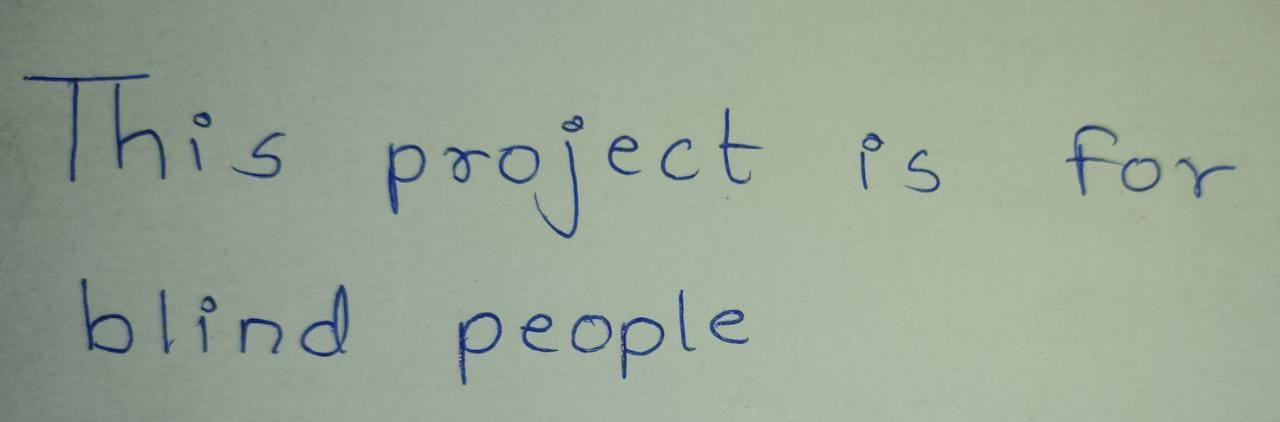 This project is for
blind people